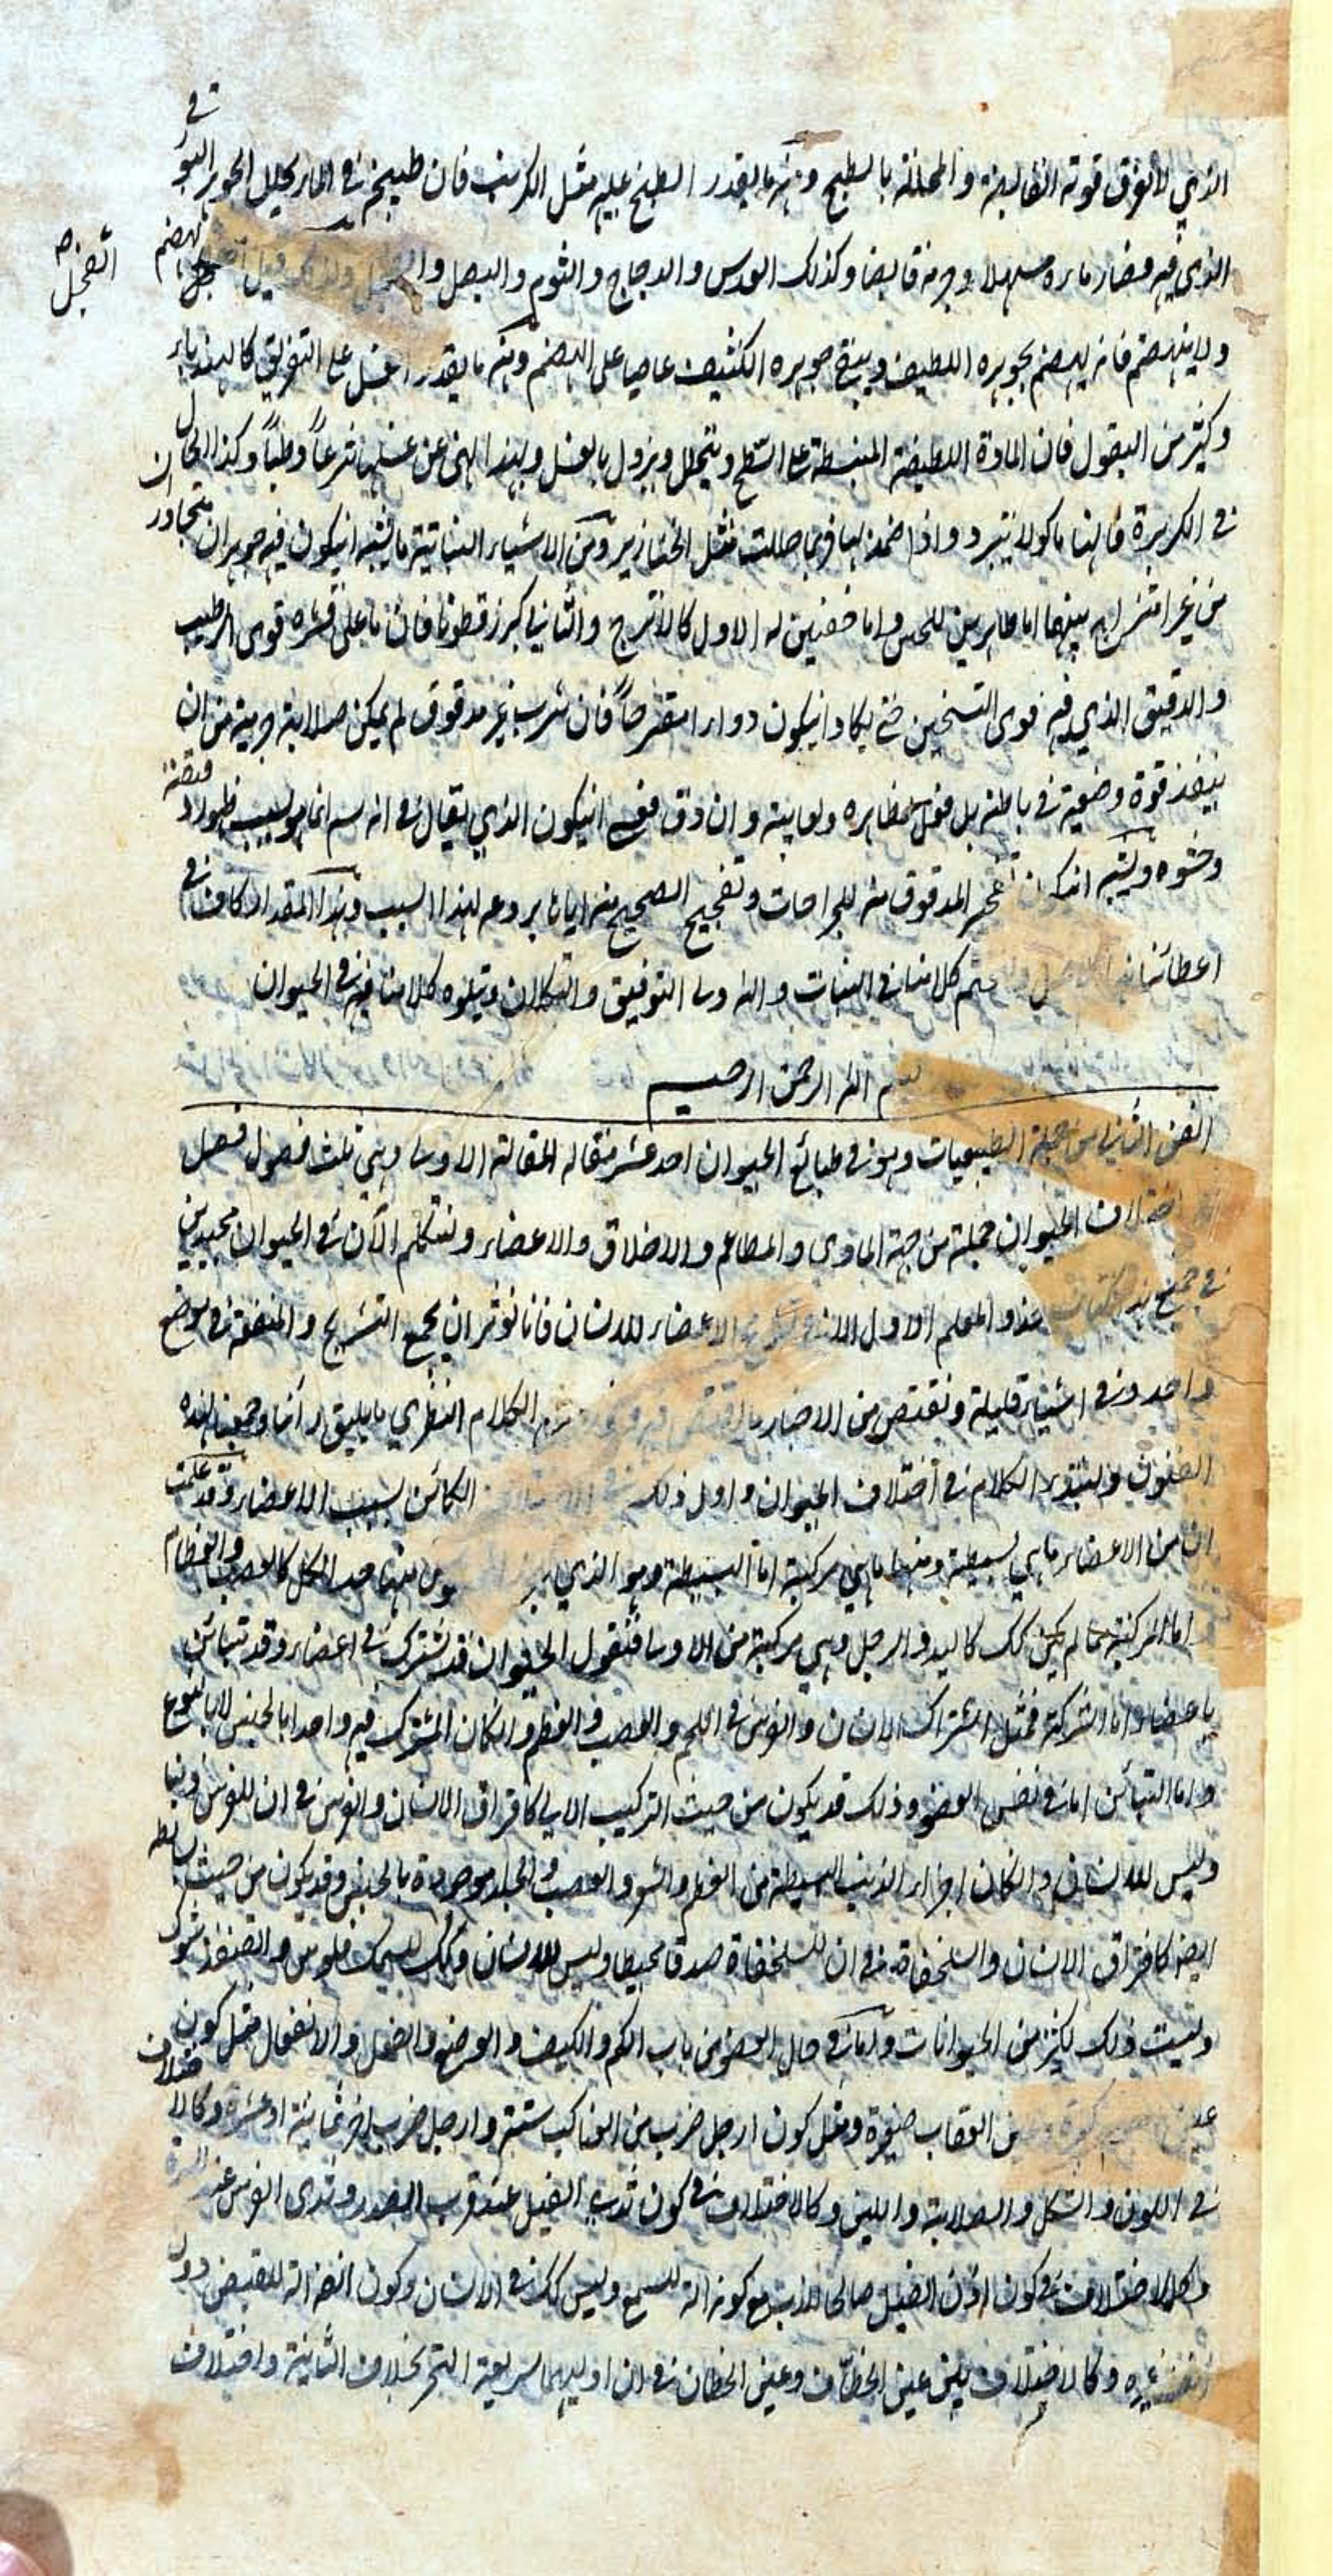 في
الذي لا تفرق قوته الغالية والمحللة بالطبخ ومنه ما يقدر الطبخ عليه مثل الكرنب فان طبيخه في الماء يحلل الجوهر البورقي
الذي فيه فصار ماؤه مسهلا وجرمه قابضا وكذلك العدس والدجاج والثوم والبصل و ولذلك قيل
ينهضم
الفجل صح
ولا ينهضم فانه يهضم بجوهره اللطيف ويبقى جوهره الكثيف عاصيا على الهضم ومنه ما يقدر الغسل على التفريق كالهندباء
وكثير من البقول فان المادة اللطيفة المنبسطة على السطح ويتحلل ويزول بالغسل وبهذا نهى عن غسلها شرعاً وطباً وكذا الحال
في الكزبرة فانها ماكولا تبرد واذا ضمد بها فربما حللت مثل الخنازير ومن الاشياء النباتية ما يشبه ان يكون فيه جوهران متجاوران
من غير امتزاج بينهما اما ظاهرين للحس واما خفيين له الاول كالاترج والثاني كبزر قطونا فان ما على قشره قوى الترطيب
والدقيق الذي فيه قوى التسخين حتى يكاد ان يكون دواء مقرحاً فان شرب غير مدقوق لم يمكن صلابة جرمه من ان
ينفذ قوة وضعية في باطنه بل فعل بظاهره ولعابيته وان دق فعسى ان يكون الذي يقال في انه سم انما هو بسبب ظهور دقيقه
وحشوه ويشبه ان يكون تفجير المدقوق منه للجراحات وتفجيج الصحيح منه اياها بردعه لهذا السبب وهذا المقدار كاف في
اعطائنا كلامنا في النبات والله ولى التوفيق والتكلان ويتلوه كلامنا فيه في الحيوان
بسم الله الرحمن الرحيم
الفن الثامن من جملة الطبيعيات وهو في طبائع الحيوان احد عشر مقاله المقالة الاولى وهي ثلث فصول فصل
اختلاف الحيوان جملة من جهة الماوى والمطاعم والاخلاق والاعضاء ولنتكلم الآن في الحيوان محتذين
في جميع هذه حذو المعلم الاول الا في تشريح الاعضاء للانسان فانا نوثر ان نجمع التشريح والمنفعة في موضع
واحد وفي اشياء قليلة ونقتص من الاخبار ما اقتص الكلام النظري ما يليق بآرائنا وجمعنا لهذه
الفنون ولنبتدء الكلام في اختلاف الحيوان واول ذلك الاختلاف الكائن بسبب الاعضاء وقد علمت
ان من الاعضاء ما هي بسيطة ومنها ما هي مركبة اما البسيطة وهو الذي حد الكل كالعصب والعظام
اما المركبة فما لم يكن كك كاليد والرجل وهي مركبة من الاولى فنقول الحيوان قد تشترك في اعضاء وقد تتبائن
باعضاء واما الشركة فمثل اشتراك الانسان والفرس في اللحم والعصب والعظم وان كان المشترك فيه واحدا بالجنس لا بالنوع
واما التبائن اما في نفس العضو وذلك قد يكون من حيث التركيب الالي كافتراق الانسان والفرس في ان للفرس ذنبا
وليس للانسان وان كان اجزاء الذنب البسيطة من العظم والشعر والعصب والجلد موجودة بالجنس وقد يكون من حيث بسائطه
ايضا كافتراق الانسان والسلحفاة في ان للسلحفاة صدفا محيطا وليس للانسان وكك للسمك فلوس وللقنفذ شوك
وليست ذلك لكثير من الحيوانات واما في حال العضو من باب الكم والكيف والوضع والفعل والانفعال فمثل كون
عين من العقاب صغيرة ومثل كون ارجل ضرب من العناكب ستة وارجل ضرب اخر ثمانية او عشرة وكالاختلاف
في اللون والشكل والصلابة واللين وكالاختلاف في كون ثدى الفيل عند قرب الصدر وثدى الفرس عند السرة
وكالاختلاف في كون اذن الفيل صالحا للذب مع كونه آلة للسمع وليس كك في الانسان وكون انفه آلة للقبض دون
انف غيره وكالاختلاف بين عين الخطاف وعين الخطاف في ان اوليهما سريعة التحرك بخلاف الثانية واختلاف